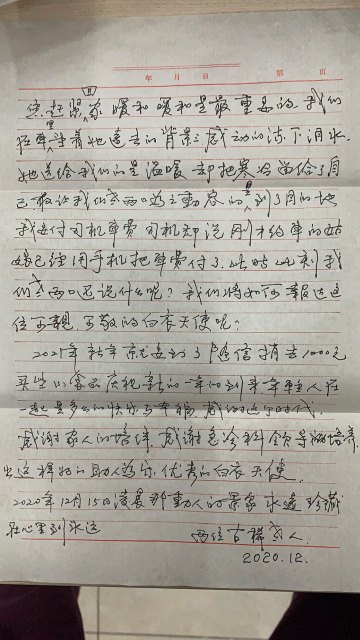 年 月 日 第 页
您赶紧回家暖和暖和是最重要的。我们
在车里望着她远去的背影感动的流下泪水。
她送给我们的是温暖 却把寒冷留给了自
己。最让我们老两口为之动容的是到了目的地
我支付司机车费 司机却说刚才约车的姑
娘已经用手机把车费付了。此时此刻我
们老两口还说什么呢？我们将如何报答这
位可亲、可敬的白衣天使呢？
2021年新年就要到了 1000元
庆祝新的一年的到来。年轻人在
一起是多么的快乐与幸福 感谢这个时代，
感谢家人的陪伴 感谢急诊科领导 培养
出这样好的助人为乐、优秀的白衣天使。
2020年12月15日凌晨那动人的景象永远珍藏
在心里 到永远
两位古稀老人
2020.12.